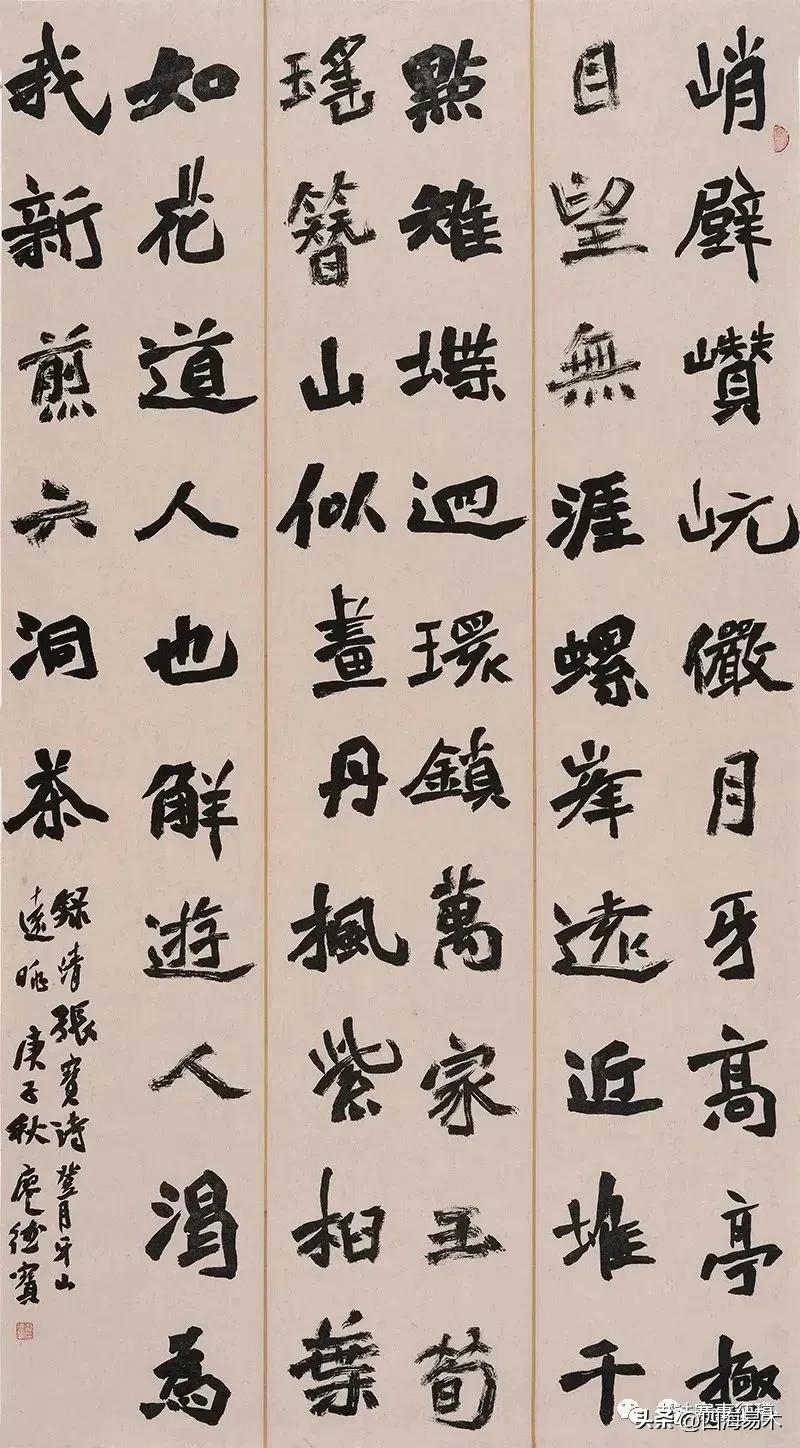 峭壁巑岏儼月牙高亭極
目望無涯螺峯遠近堆千
點雉堞迴環鎖萬家玉荀
瑤簪山似畫丹楓紫柏葉
如花道人也解遊人渴為
我新煎六洞茶
錄清張寶詩登月牙山
遠眺庚子秋廖德寶
头条@四海易木